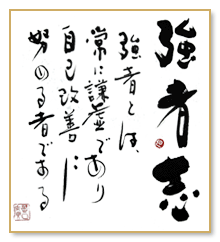 強者志
強者とは、
常に謙虚であり
自己改善に
努める者である